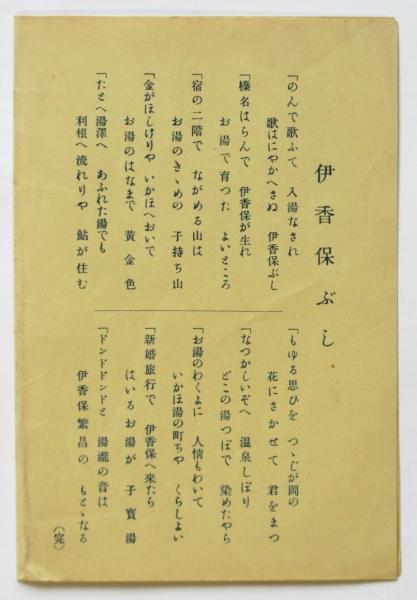 伊香保ぶし
「のんで歌ふて 入湯なされ
歌はにやかへさぬ 伊香保ぶし
「榛名はらんで 伊香保が生れ
お湯で育つた よいところ
「宿の二階で ながめる山は
お湯のきゝめの 子持ち山
「金がほしけりや いかほへおいで
お湯のはなまで 黄金色
「たとへ湯澤へ あふれた湯でも
利根へ流れりや 鮎が住む
「もゆる思ひを つゝじが岡の
花にさかせて 君をまつ
「なつかしいぞへ 温泉しぼり
どこの湯つぼで 染めたやら
「お湯のわくよに 人情もわいて
いかほ湯の町ちや くらしよい
「新婚旅行で 伊香保へ來たら
はいるお湯が 子寳湯
「ドンドドンドと 湯瀧の音は
伊香保繁昌の もとゝなる
(完)